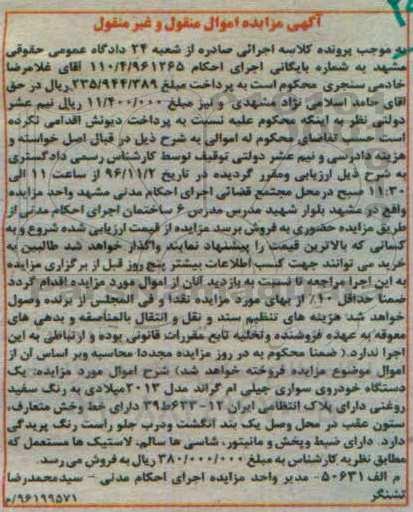 آگهی مزایده اموال منقول و غیر منقول
به موجب پرونده کلاسه اجرائی صادره از شعبه ۲۴ دادگاه عمومی حقوقی
مشهد به شماره بایگانی اجرای احکام ۱۱۰/۴/۹۶۱۲۶۵ آقای غلامرضا
خادمی سنجری محکوم است به پرداخت مبلغ ۲۳۵/۹۴۴/۳۸۹ ریال در حق
آقای حامد اسلامی نژاد مشهدی و نیز مبلغ ۱۱/۴۰۰/۰۰۰ ریال نیم عشر
دولتی نظر به اینکه محکوم علیه نسبت به پرداخت دیونش اقدامی نکرده
است حسب تقاضای محکوم له اموالی به شرح ذیل در قبال اصل خواسته و
هزینه دادرسی و نیم عشر دولتی توقیف توسط کارشناس رسمی دادگستری
به شرح ذیل ارزیابی ومقرر گردیده در تاریخ ۹۶/۱۱/۲ از ساعت ۱۱ الی
۱۱:۳۰ صبح درمحل مجتمع قضائی اجرای احکام مدنی مشهد واحد مزایده
واقع در مشهد بلوار شهید مدرس مدرس ۶ ساختمان اجرای احکام مدنی از
طریق مزایده حضوری به فروش برسد مزایده از قیمت ارزیابی شده شروع و به
کسانی که بالاترین قیمت را پیشنهاد نمایند واگذار خواهد شد طالبین به
خرید می توانند جهت کسب اطلاعات بیشتر پنج روز قبل از برگزاری مزایده
به این اجرا مراجعه تا نسبت به بازدید آنان از اموال مورد مزایده اقدام گردد
ضمنا حداقل ۱۰٪ از بهای مورد مزایده نقدا و فی المجلس از برنده وصول
خواهد شد هزینه های تنظیم سند و نقل و انتقال بالمناصفه و بدهی های
معوقه به عهده فروشنده وتخلیه تابع مقررات قانونی بوده و ارتباطی به این
اجرا ندارد.( ضمنا محکوم به در روز مزایده مجددا محاسبه وبر اساس ان از
اموال موضوع مزایده فروخته خواهد شد) شرح اموال مورد مزایده: یک
دستگاه خودروی سواری جیلی ام گراند مدل ۲۰۱۳میلادی به رنگ سفید
روغنی دارای پلاک انتظامی ایران ۱۲-۶۳۳ط۳۹ دارای خط وخش متعارف،
ستون عقب در محل وصل یک بند انگشت ودرب جلو راست رنگ پریدگی
دارد. دارای ضبط وپخش و مانیتور، شاسی ها سالم، لاستیک ها مستعمل که
مطابق نظریه کارشناس به مبلغ ۳۸۰/۰۰۰/۰۰۰ ریال به فروش می رسد.
م الف ۵۰۶۳۱- مدیر واحد مزایده اجرای احکام مدنی - سیدمحمدرضا
تشنگر
۹۶۱۹۹۵۷۱/م